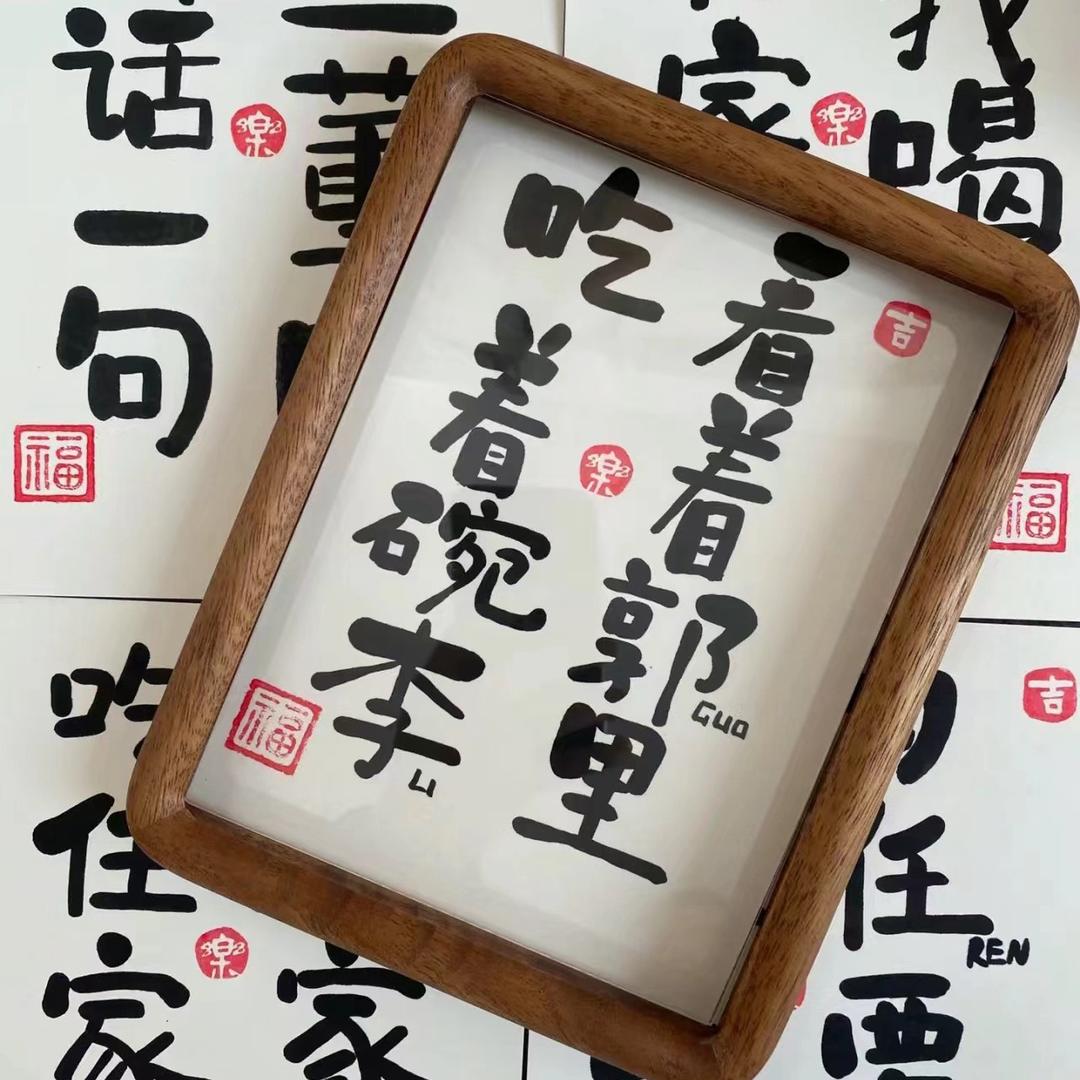 看着郭里
Guo
吃着碗李
Li
吉
楽
福
一董
话一句
楽
福
喝
家
楽
福
吉
任
REN
家
住家
楽